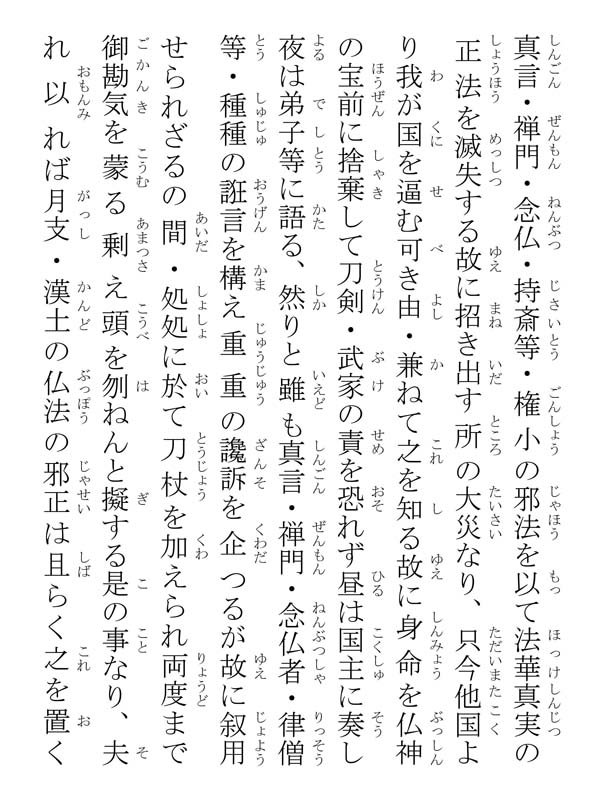 真言・禅門・念仏・持斎等・権小の邪法を以て法華真実の
正法を滅失する故に招き出す所の大災なり、只今他国よ
り我が国を逼む可き由・兼ねて之を知る故に身命を仏神
の宝前に捨棄して刀剣・武家の責を恐れず昼は国主に奏し
夜は弟子等に語る、然りと雖も真言・禅門・念仏者・律僧
等・種種の誑言を構え重重の讒訴を企つるが故に叙用
せられざるの間・処処に於て刀杖を加えられ両度まで
御勘気を蒙る剰え頭を刎ねんと擬する是の事なり、夫
れ以れば月支・漢土の仏法の邪正は且らく之を置く